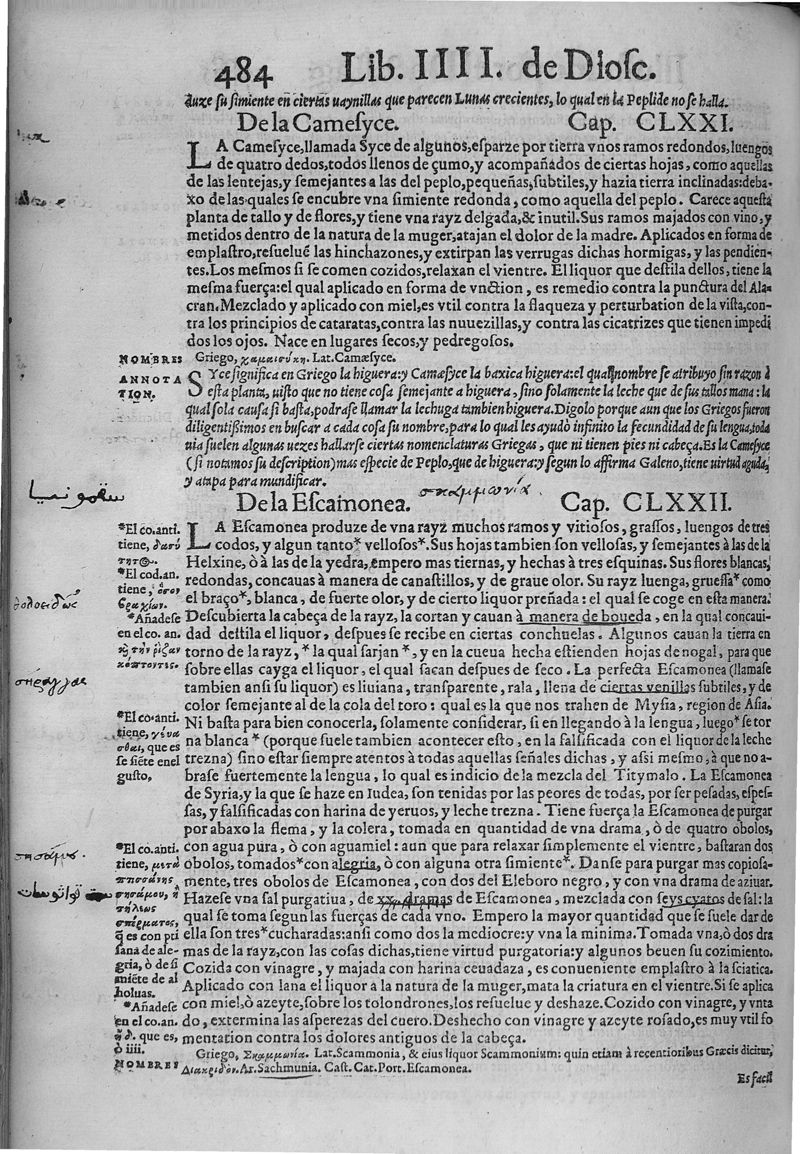 484 Lib. IIII. de Diosc.
duze su simiente en ciertas uaynillas que parecen Lunas crecientes, lo qual en la Peplide no se halla.
De la Camesyce. Cap. CLXXI.
LA Camesyce, llamada Syce de algunos, esparze por tierra vnos ramos redondos, luengos
de quatro dedos, todos llenos de çumo, y acompañados de ciertas hojas, como aquellas
de las lentejas, y semejantes a las del peplo, pequeñas, subtiles, y hazia tierra inclinadas: deba-
xo de las quales se encubre vna simiente redonda, como aquella del peplo. Carece aquesta
planta de tallo y de flores, y tiene vna rayz delgada, & inutil. Sus ramos majados con vino, y
metidos dentro de la natura de la muger, atajan el dolor de la madre. Aplicados en forma de
emplastro, resueluẽ las hinchazones, y extirpan las verrugas dichas hormigas, y las pendien-
tes. Los mesmos si se comen cozidos, relaxan el vientre. El liquor que destila dellos, tiene la
mesma fuerça: el qual aplicado en forma de vnction, es remedio contra la punctura del Ala-
cran. Mezclado y aplicado con miel, es vtil contra la flaqueza y perturbation de la vista, con-
tra los principios de cataratas, contra las nuuezillas, y contra las cicatrizes que tienen impedi
dos los ojos. Nace en lugares secos, y pedregosos.
NOMBRES Griego, χαμαισύκη. Lat. Camæsyce.
ANNOTA
TION.
SYce significa en Griego la higuera: y Camæsyce la baxica higuera: el qual nombre se atribuyo sin razon à
esta planta, uisto que no tiene cosa semejante a higuera, sino solamente la leche que de sus tallos mana: la
qual sola causa si basta, podrase llamar la lechuga tambien higuera. Digolo porque aun que los Griegos fueron
diligentissimos en buscar a cada cosa su nombre, para lo qual les ayudò infinito la fecundidad de su lengua, toda
uia suelen algunas uezes hallarse ciertas nomenclaturas Griegas, que ni tienen pies ni cabeça. Es la Camesyce
(si notamos su description) mas especie de Peplo, que de higuera: y segun lo affirma Galeno, tiene uirtud aguda,
y atapa para mundificar.
سقمونيا
De la Escamonea. σκαμμωνία Cap. CLXXII.
LA Escamonea produze de vna rayz muchos ramos y vitiosos, grassos, luengos de tres
codos, y algun tanto* vellosos*. Sus hojas tambien son vellosas, y semejantes à las de la
Helxine, ò à las de la yedra, empero mas tiernas, y hechas à tres esquinas. Sus flores blancas,
redondas, concauas à manera de canastillos, y de graue olor. Su rayz luenga, gruessa* como
el braço*, blanca, de fuerte olor, y de cierto liquor preñada: el qual se coge en esta manera.
Descubierta la cabeça de la rayz, la cortan y cauan à manera de boueda, en la qual concaui-
dad destila el liquor, despues se recibe en ciertas conchuelas. Algunos cauan la tierra en
torno de la rayz, * la qual sarjan*, y en la cueua hecha estienden hojas de nogal, para que
sobre ellas cayga el liquor, el qual sacan despues de seco. La perfecta Escamonea (llamase
tambien ansi su liquor) es liuiana, transparente, rala, llena de ciertas venillas subtiles, y de
color semejante al de la cola del toro: qual es la que nos trahen de Mysia, region de Asia.
Ni basta para bien conocerla, solamente considerar, si en llegando à la lengua, luego* se tor
na blanca * (porque suele tambien acontecer esto, en la falsificada con el liquor de la leche
trezna) sino estar siempre atentos à todas aquellas señales dichas, y assi mesmo, à que no a-
brase fuertemente la lengua, lo qual es indicio de la mezcla del Titymalo. La Escamonea
de Syria, y la que se haze en Iudea, son tenidas por las peores de todas, por ser pesadas, espes-
sas, y falsificadas con harina de yeruos, y leche trezna. Tiene fuerça la Escamonea de purgar
por abaxo la flema, y la colera, tomada en quantidad de vna drama, ò de quatro obolos,
con agua pura, ò con aguamiel: aun que para relaxar simplemente el vientre, bastaran dos
obolos, tomados* con alegria, ò con alguna otra simiente*. Danse para purgar mas copiosa-
mente, tres obolos de Escamonea, con dos del Eleboro negro, y con vna drama de aziuar.
Hazese vna sal purgatiua, de xx. dramas de Escamonea, mezclada con seys cyatos de sal: la
qual se toma segun las fuerças de cada vno. Empero la mayor quantidad que se suele dar de
ella son tres* cucharadas: ansi como dos la mediocre: y vna la minima. Tomada vna, ò dos dra
mas de la rayz, con las cosas dichas, tiene virtud purgatoria: y algunos beuen su cozimiento.
Cozida con vinagre, y majada con harina ceuadaza, es conueniente emplastro à la sciatica.
Aplicado con lana el liquor à la natura de la muger, mata la criatura en el vientre. Si se aplica
con miel, ò azeyte, sobre los tolondrones, los resuelue y deshaze. Cozido con vinagre, y vnta
do, extermina las asperezas del cuero. Deshecho con vinagre y azeyte rosado, es muy vtil fo
mentacion contra los dolores antiguos de la cabeça.
*El co. anti.
tiene, δασύ
τητος.
*El cod. an.
tiene, ὅσον
βραχίων.
*Añadese
en el co. an.
τὴν ῥίζαν
κόπτοντες.
*El co. anti.
tiene, γίνε
σθαι, que es
se siẽte en el
gusto,
*El co. anti.
tiene, μετὰ
πτισάνης
σησάμου, ἢ
τήλεως
σπέρματος,
q̃ es con pti
sana de ale-
gria, ò de si
miẽte de al
holuas.
*Añadese
en el co. an.
ἢ δ. que es,
ò iiii.
σήραγγας
σησάμος.
NOMBRES Griego, Σκαμμωνία. Lat. Scammonia, & eius liquor Scammonium: quin etiam à recentioribus Græcis dicitur,
Διακρίδον. Ar. Sachmunia. Cast. Cat. Port. Escamonea.
Es facil